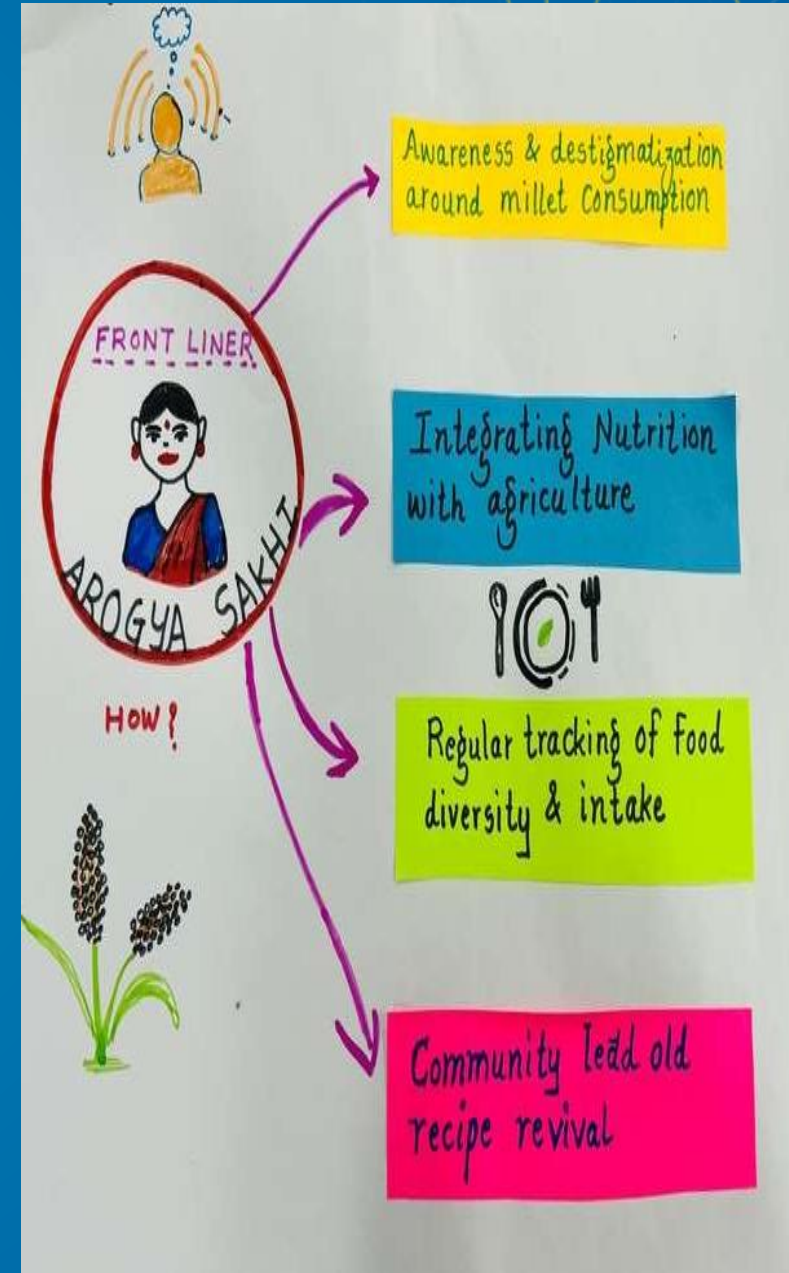 FRONT LINER
AROGYA SAKHI
HOW?
Awareness & destigmatization
around millet Consumption
Integrating Nutrition
with agriculture
Regular tracking of Food
diversity & intake
Community lead old
recipe revival